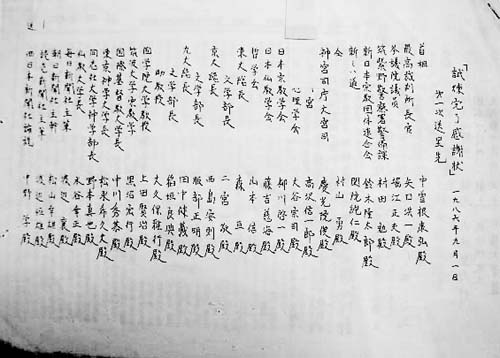 「試煉完了感謝状」 一九八六年九月一日
第一次送呈先
首相 中曽根康弘殿
最高裁判所長官 矢口洪一殿
参議院議員 堀江正夫殿
筑紫野警察署警備課 村田 殿
新日本宗教団体連合会 鈴木隆太郎殿
新しい道 純仁殿
会 村山 勇殿
神宮司庁大宮司 慶光院俊殿
宮 高沢信一郎殿
心理学会 大谷宗司殿
日本宗教学会 柳川啓一殿
日本仏教学会 藤吉慈海殿
哲学会 山本 信殿
東大総長 森 亘殿
文学部長 二宮 敬殿
京大総長 西島安則殿
文学部長 服部正明殿
九大総長 田中健蔵殿
文学部長 稲垣良典殿
助教授 大久保雅行殿
国学院大学教授 上田賢治殿
筑波大学 殿
国際基督教大学長 中川秀恭殿
東京神学大学長 松永希久夫殿
同志社大学神学部長 野本真也殿
仏教大学長 水谷幸正殿
毎日新聞社主筆 渡辺 襄殿
朝日新聞社主幹 松山幸雄殿
読売新聞社主筆 渡辺恒雄殿
西日本新聞社論説 中野 学殿
送